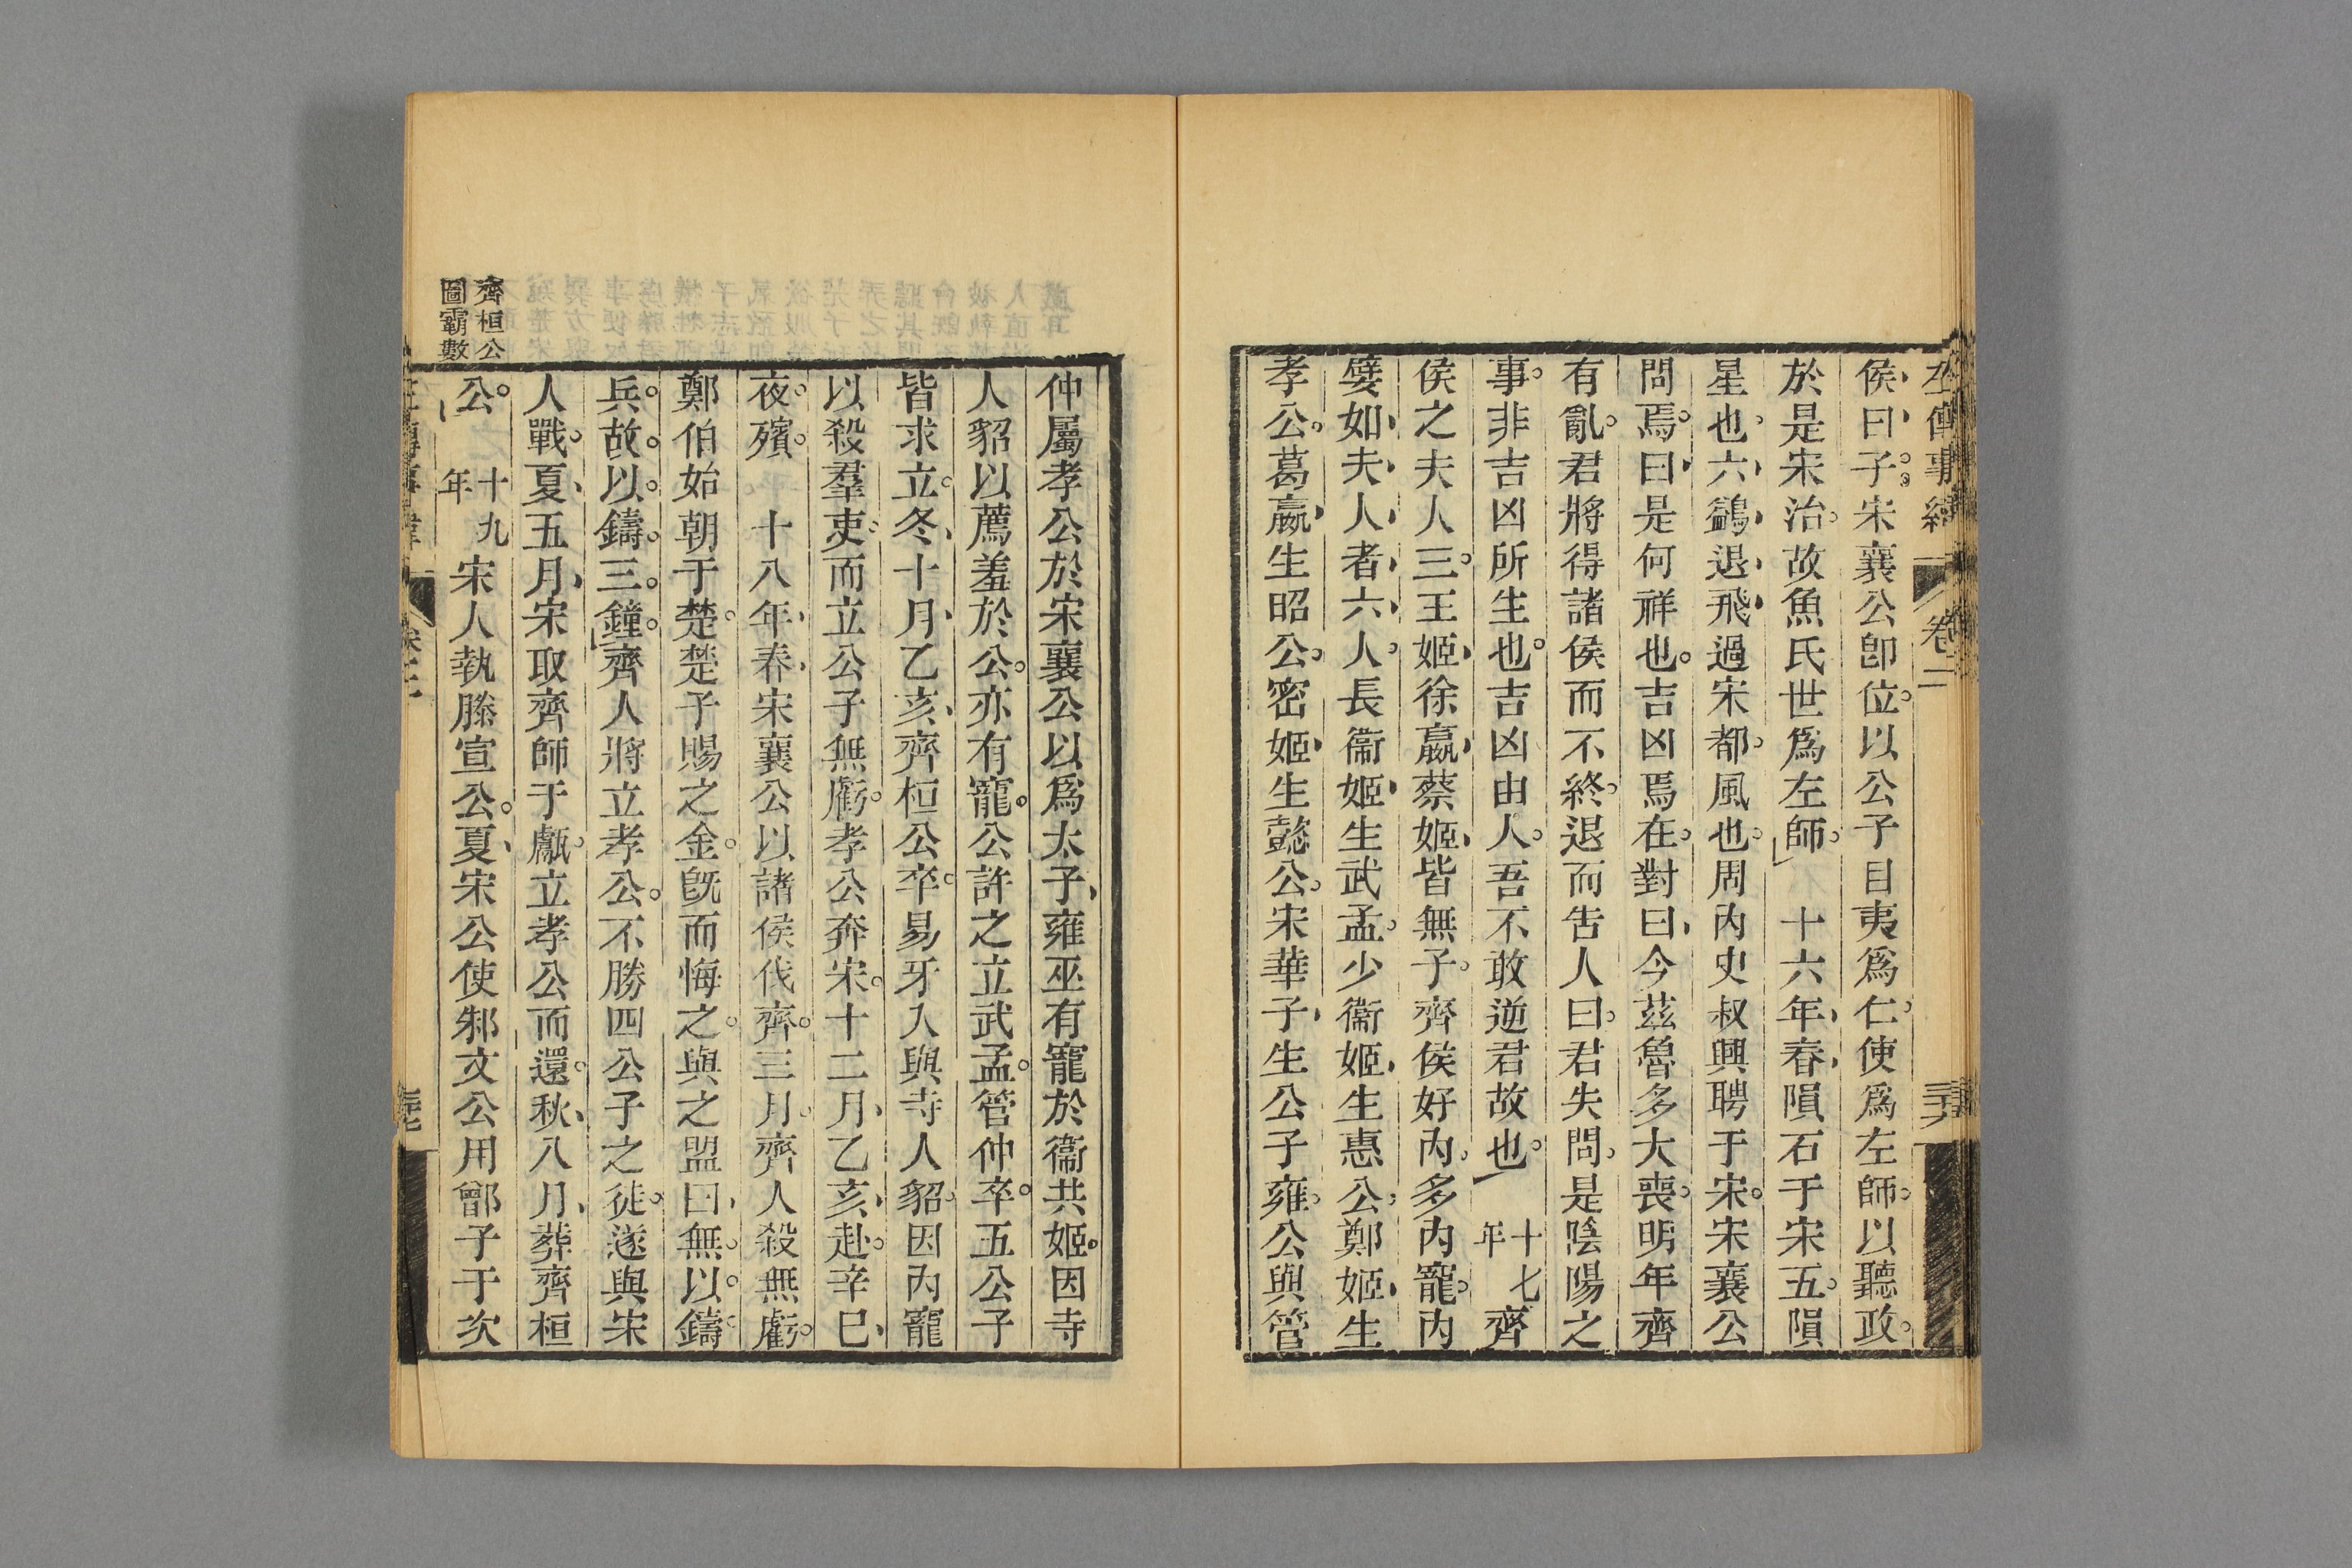 左傳事緯
卷二
三十六
侯曰子宋襄公卽位以公子目夷爲仁使爲左師以聽政
於是宋治故魚氏世爲左師十六年春隕石于宋五隕
星也六鷁退飛過宋都風也周內史叔興聘于宋宋襄公
問焉曰是何祥也吉凶焉在對曰今茲魯多大喪明年齊
有亂君將得諸侯而不終退而告人曰君失問是陰陽之
事非吉凶所生也吉凶由人吾不敢逆君故也十七年齊
侯之夫人三王姬徐嬴蔡姬皆無子齊侯好內多內寵內
嬖如夫人者六人長衞姬生武孟少衞姬生惠公鄭姬生
孝公葛嬴生昭公密姬生懿公宋華子生公子雍公與管
仲屬孝公於宋襄公以爲太子雍巫有寵於衞共姬因寺
人貂以薦羞於公亦有寵公許之立武孟管仲卒五公子
皆求立冬十月乙亥齊桓公卒易牙入與寺人貂因內寵
以殺羣吏而立公子無虧孝公奔宋十二月乙亥赴辛巳
夜殯十八年春宋襄公以諸侯伐齊三月齊人殺無虧
鄭伯始朝于楚楚子賜之金旣而悔之與之盟曰無以鑄
兵故以鑄三鐘齊人將立孝公不勝四公子之徒遂與宋
人戰夏五月宋取齊師于甗立孝公而還秋八月葬齊桓
公十九年宋人執滕宣公夏宋公使邾文公用鄫子于次
齊桓公
圖霸數
左傳事緯
卷二
三十七